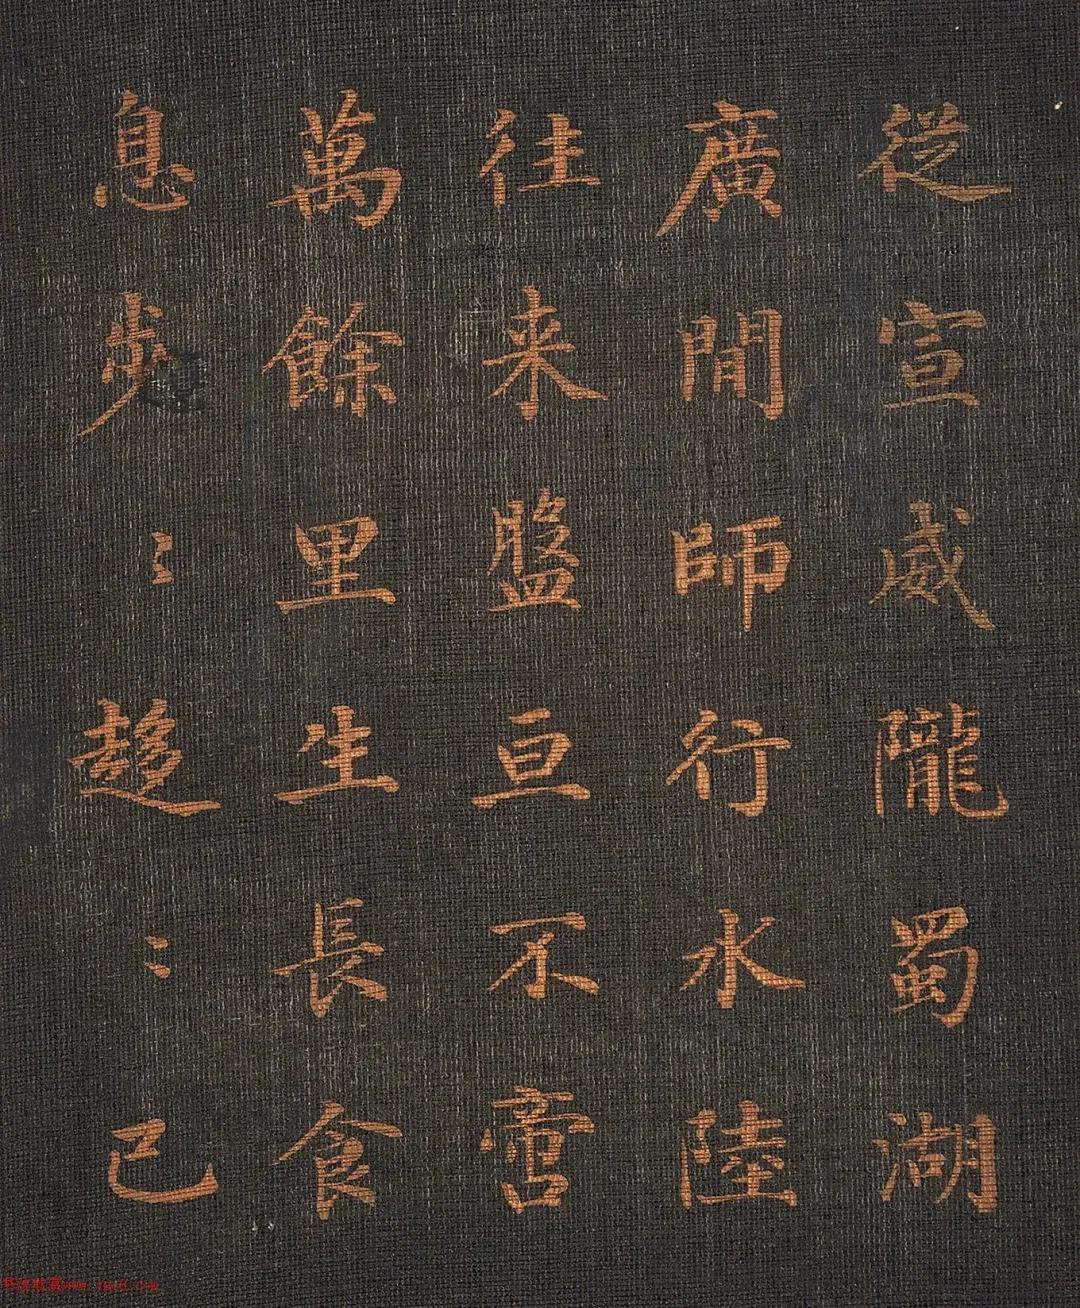 從宣威隴蜀湖
廣間師行水陸
往来盤亘不啻
萬餘里生長食
息步〻趍〻已